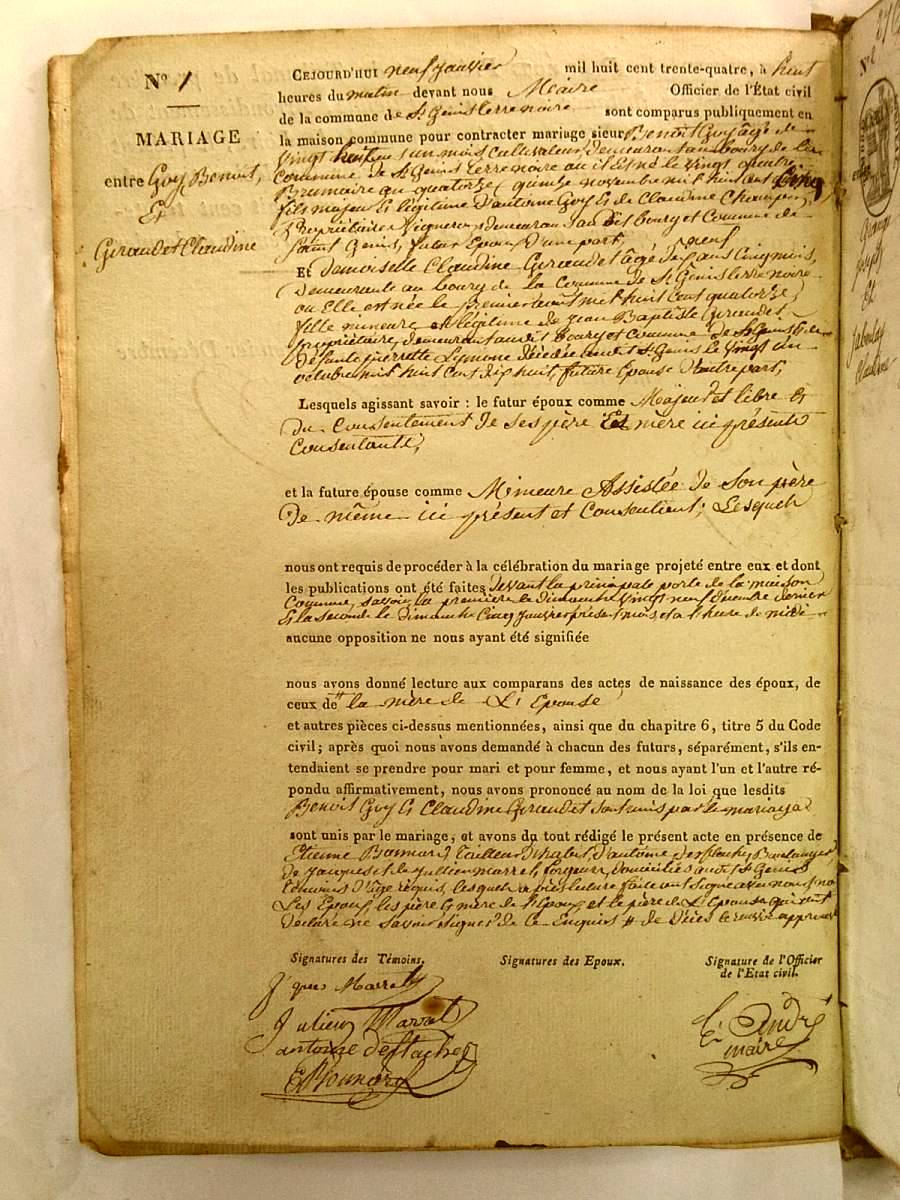 N° 1
MARIAGE
entre Goy Benoit,
Et
Giraudet Claudine
CEJOURD'HUI neuf janvier mil huit cent trente-quatre, à huit
heures du matin devant nous Maire Officier de l'État civil
de la commune de St Genis terre noire sont comparus publiquement en
la maison commune pour contracter mariage sieur Benoit Goy âgé de
vingt huit ans un mois, cultivateur, demeurant au bourg de la
Commune de St Genis terre noire où il est né le vingt quatre
Brumaire an quatorze (quinze novembre mil huit cent cinq
fils majeur & légitime d'antoine Goy & de Claudine
Propriétaire Vigneron, demeurant au dit bourg et Commune de
Saint Genis, futur Epoux d'une part,
Et Demoiselle Claudine Giraudet âgée de dix neuf ans cinq mois,
demeurante au bourg de la Commune de St Genis terre noire
où Elle est née le premier août mil huit cent quatorze,
fille mineure et légitime de Jean Baptiste Giraudet
propriétaire, demeurant audit bourg et commune de St Genis & de
défunte pierrette décédée audit St Genis le vingt un
octobre mil huit cent dix huit, future épouse d'autre part,
Lesquels agissant savoir : le futur époux comme Majeur et libre &
du Consentement de ses père Et mère ici présents
Consentants,
et la future épouse comme Mineure Assistée de Son père
de même ici présent et Consentient; Lesquels
nous ont requis de procéder à la célébration du mariage projeté entre eux et dont
les publications ont été faites devant la principale porte de la maison
Commune, savoir la première le dimanche vingt neuf décembre dernier
& la seconde le dimanche Cinq janvier présent mois, et à l'heure de midi
aucune opposition ne nous ayant été signifiée
nous avons donné lecture aux comparans des actes de naissance des époux, de
ceux de la mère de L'Epouse
et autres pièces ci-dessus mentionnées, ainsi que du chapitre 6, titre 5 du Code
civil; après quoi nous avons demandé à chacun des futurs, séparément, s'ils en-
tendaient se prendre pour mari et pour femme, et nous ayant l'un et l'autre ré-
pondu affirmativement, nous avons prononcé au nom de la loi que lesdits
Benoit Goy & Claudine Giraudet sont unis par le mariage
sont unis par le mariage, et avons du tout rédigé le présent acte en présence de
Etienne Bonnard, tailleur d'habits, d'antoine Boulanger
de Jacques et de Jullien Marret, forgeurs, domiciliés audit St Genis
témoins d'âge réquis, lesquels après lecture faite ont signé avec nous, non
Les Epoux, les père & mère de l'Epoux et le père de L'Epouse qui ont
déclaré ne savoir signer de ce Enquis # de décès le renvoi approuvé
Signatures des Témoins.
Signatures des Epoux.
Signature de l'Officier
de l'Etat civil.
Marret
Julien Marret
antoine
E Bonnard
André
maire
N°
Et